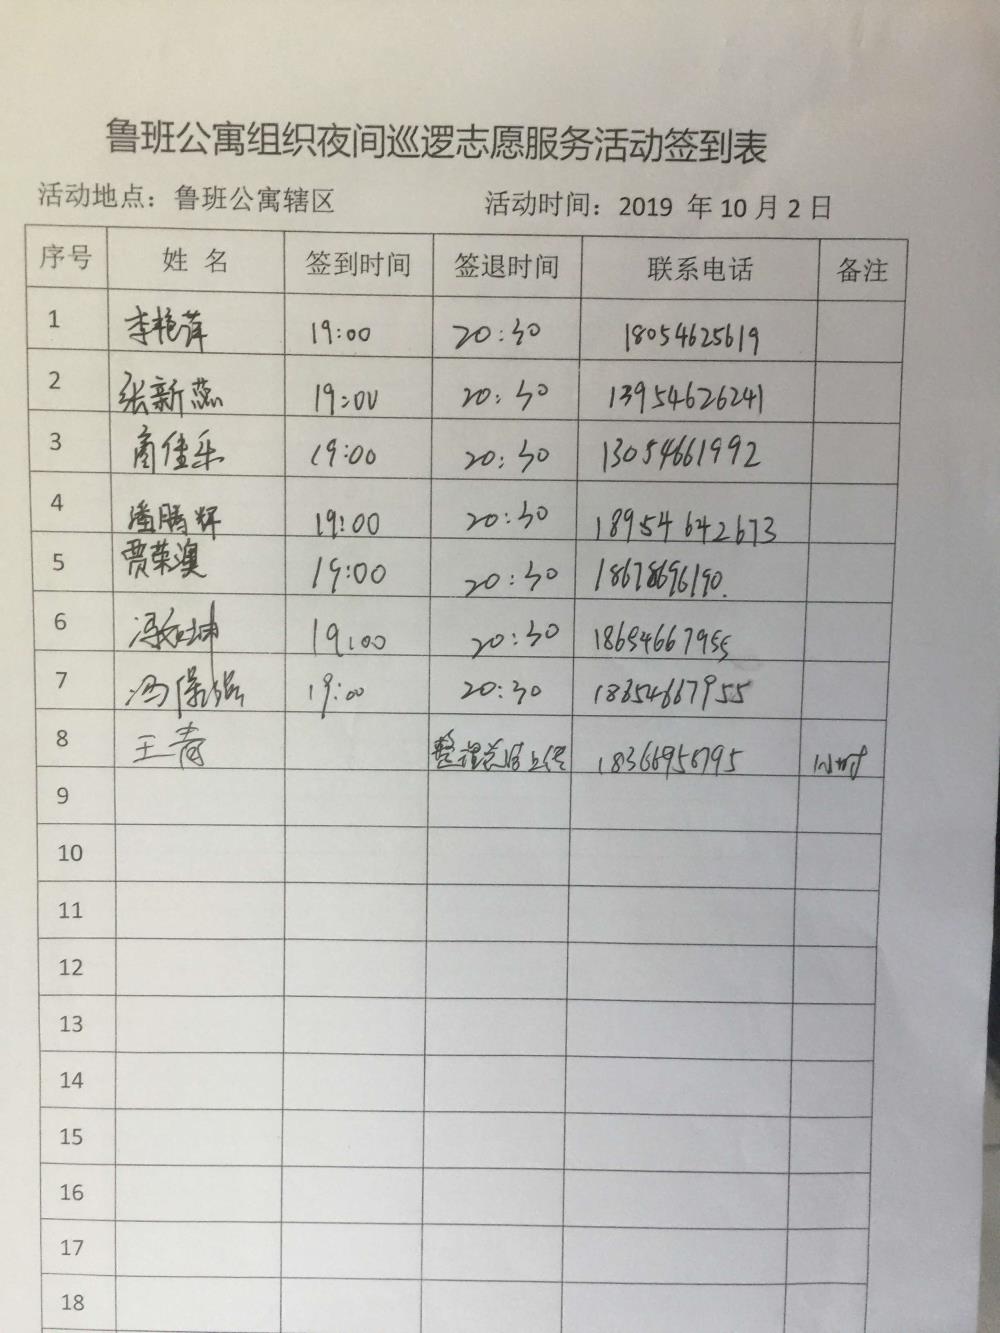 鲁班公寓组织夜间巡逻志愿服务活动签到表
活动地点：鲁班公寓辖区 活动时间：2019 年 10 月 2 日
序号 姓 名 签到时间 签退时间 联系电话 备注
1 李艳萍 19:00 20:30 18054625619
2 张新蕊 19:00 20:30 13954626241
3 商佳乐 19:00 20:30 13054661992
4 潘腾辉 19:00 20:30 18954642673
5 贾荣澳 19:00 20:30 18678696190.
6 19:00 20:30 18654667955
7 冯保强 19:00 20:30 18354667955
8 王青 整理总结上传 18366956795
9
10
11
12
13
14
15
16
17
18